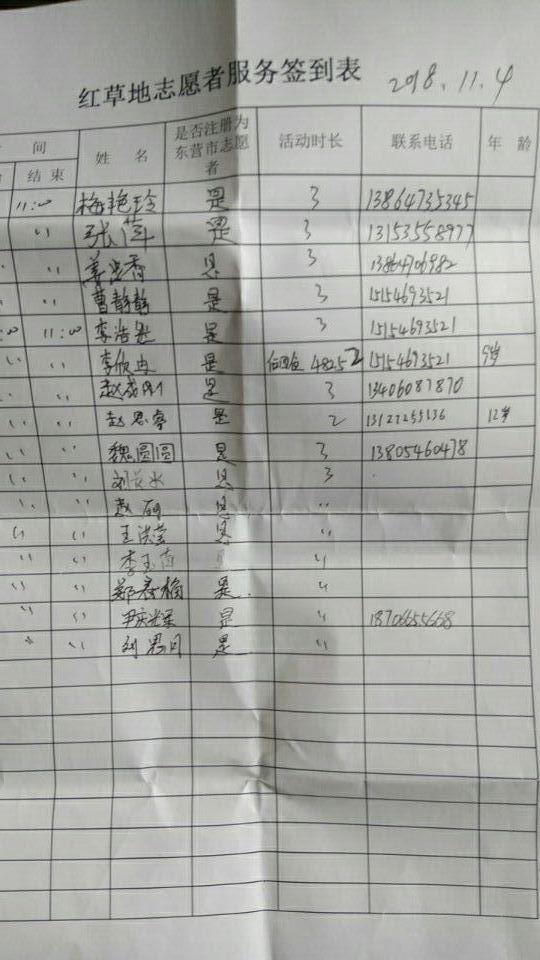 红草地志愿者服务签到表 2018.11.4
间 结束 姓名 是否注册为东营市志愿者 活动时长 联系电话 年龄
11:00 梅艳玲 是 3 13864735345
〃 张萍 是 3 13153558977
〃 是 3 13864706982
〃 曹静静 是 3 15154693521
11:00 李浩 是 3 15154693521
〃 〃 李欣冉 是 48252 15154693521 9岁
〃 〃 赵 是 3 13406087870
〃 〃 赵思睿 是 2 12岁
〃 〃 魏圆圆 是 3 13805460478
〃 〃 刘 是 3
〃 〃 赵 是 〃
〃 〃 王洪莹 是 〃
〃 〃 李玉 是 〃
〃 〃 郑春梅 是 〃
〃 〃 尹 是 〃 18706655668
〃 〃 刘思问 是 〃